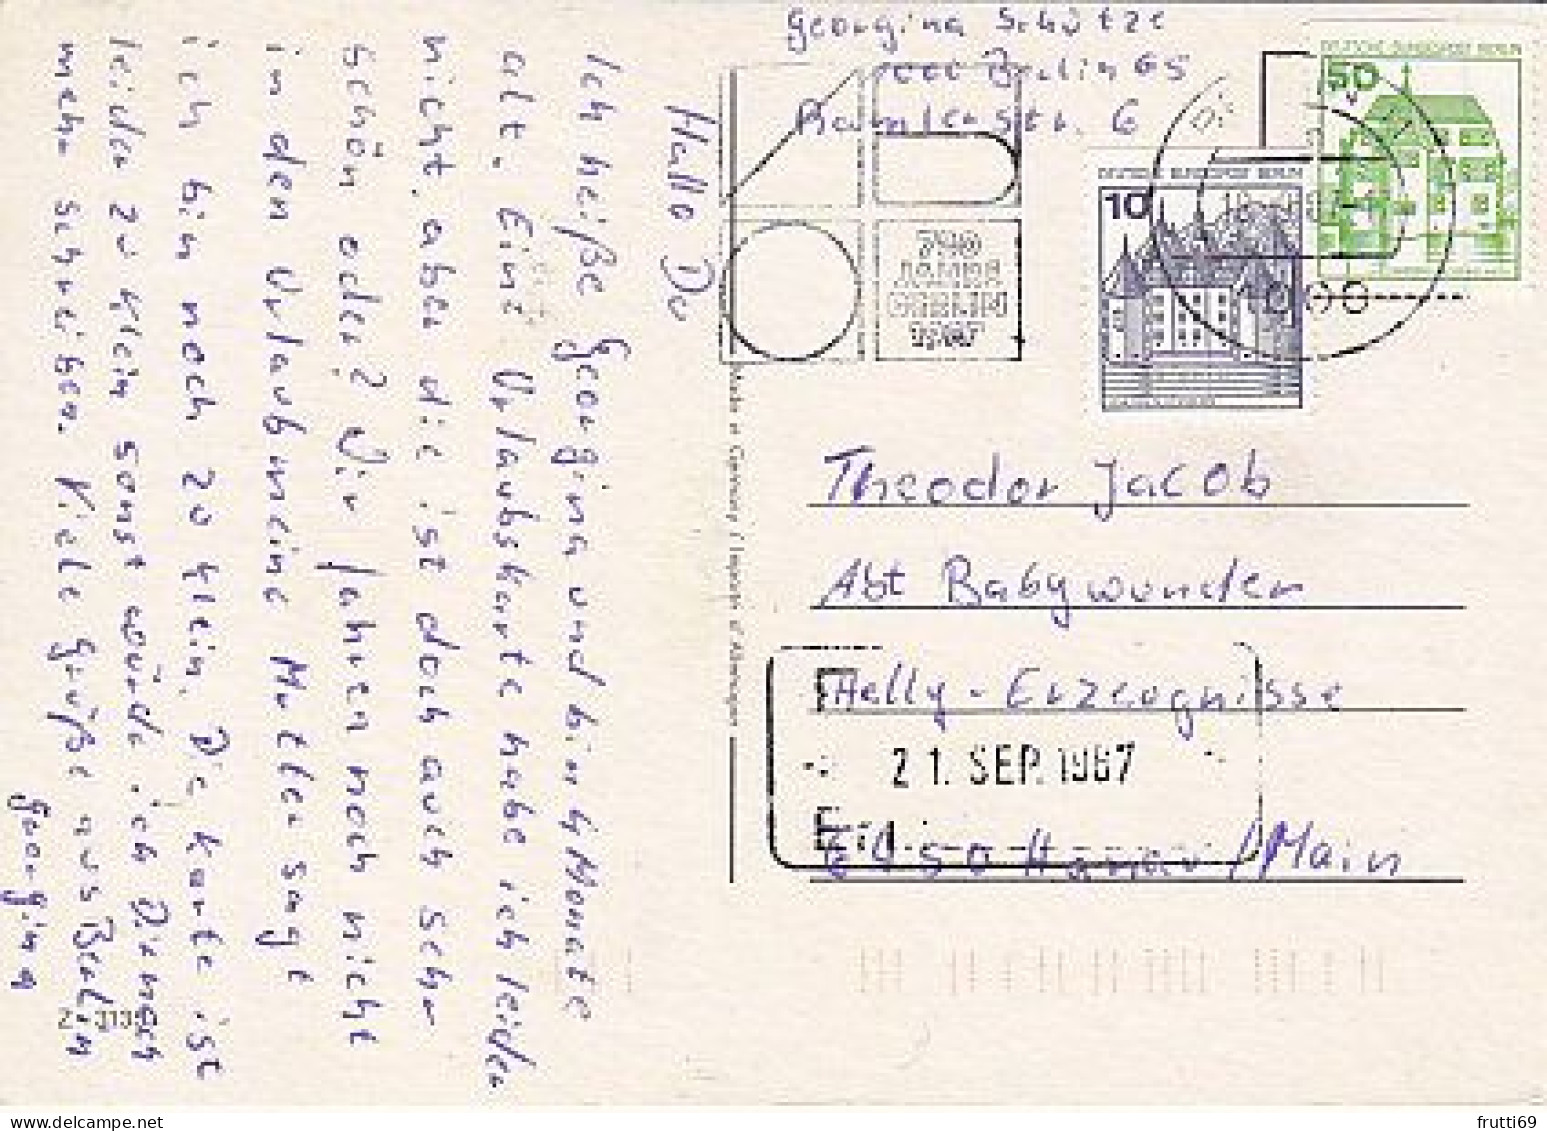 Hallo Du
Ich heiße Georgina und bin 4 Monate
alt. Eine Urlaubskarte habe ich leider
nicht, aber die ist doch auch sehr
schön oder? Wir fahren noch nicht
in den Urlaub meine Mutter sagt
ich bin noch zu klein. Die Karte ist
leider zu klein sonst würde ich Dir noch
mehr schreiben. Viele Grüße aus Berlin
Georgina
Georgina Schütze
1000 Berlin 65
6
DEUTSCHE BUNDESPOST BERLIN
50
DEUTSCHE BUNDESPOST BERLIN
10
750
JAHRE
BERLIN
1987
1000
Made in Germany / Importé d'Allemagne
Theodor Jacob
Abt Babywunder
Helly-Erzeugnisse
21. SEP. 1987
6450 Hanau/Main
frutti69